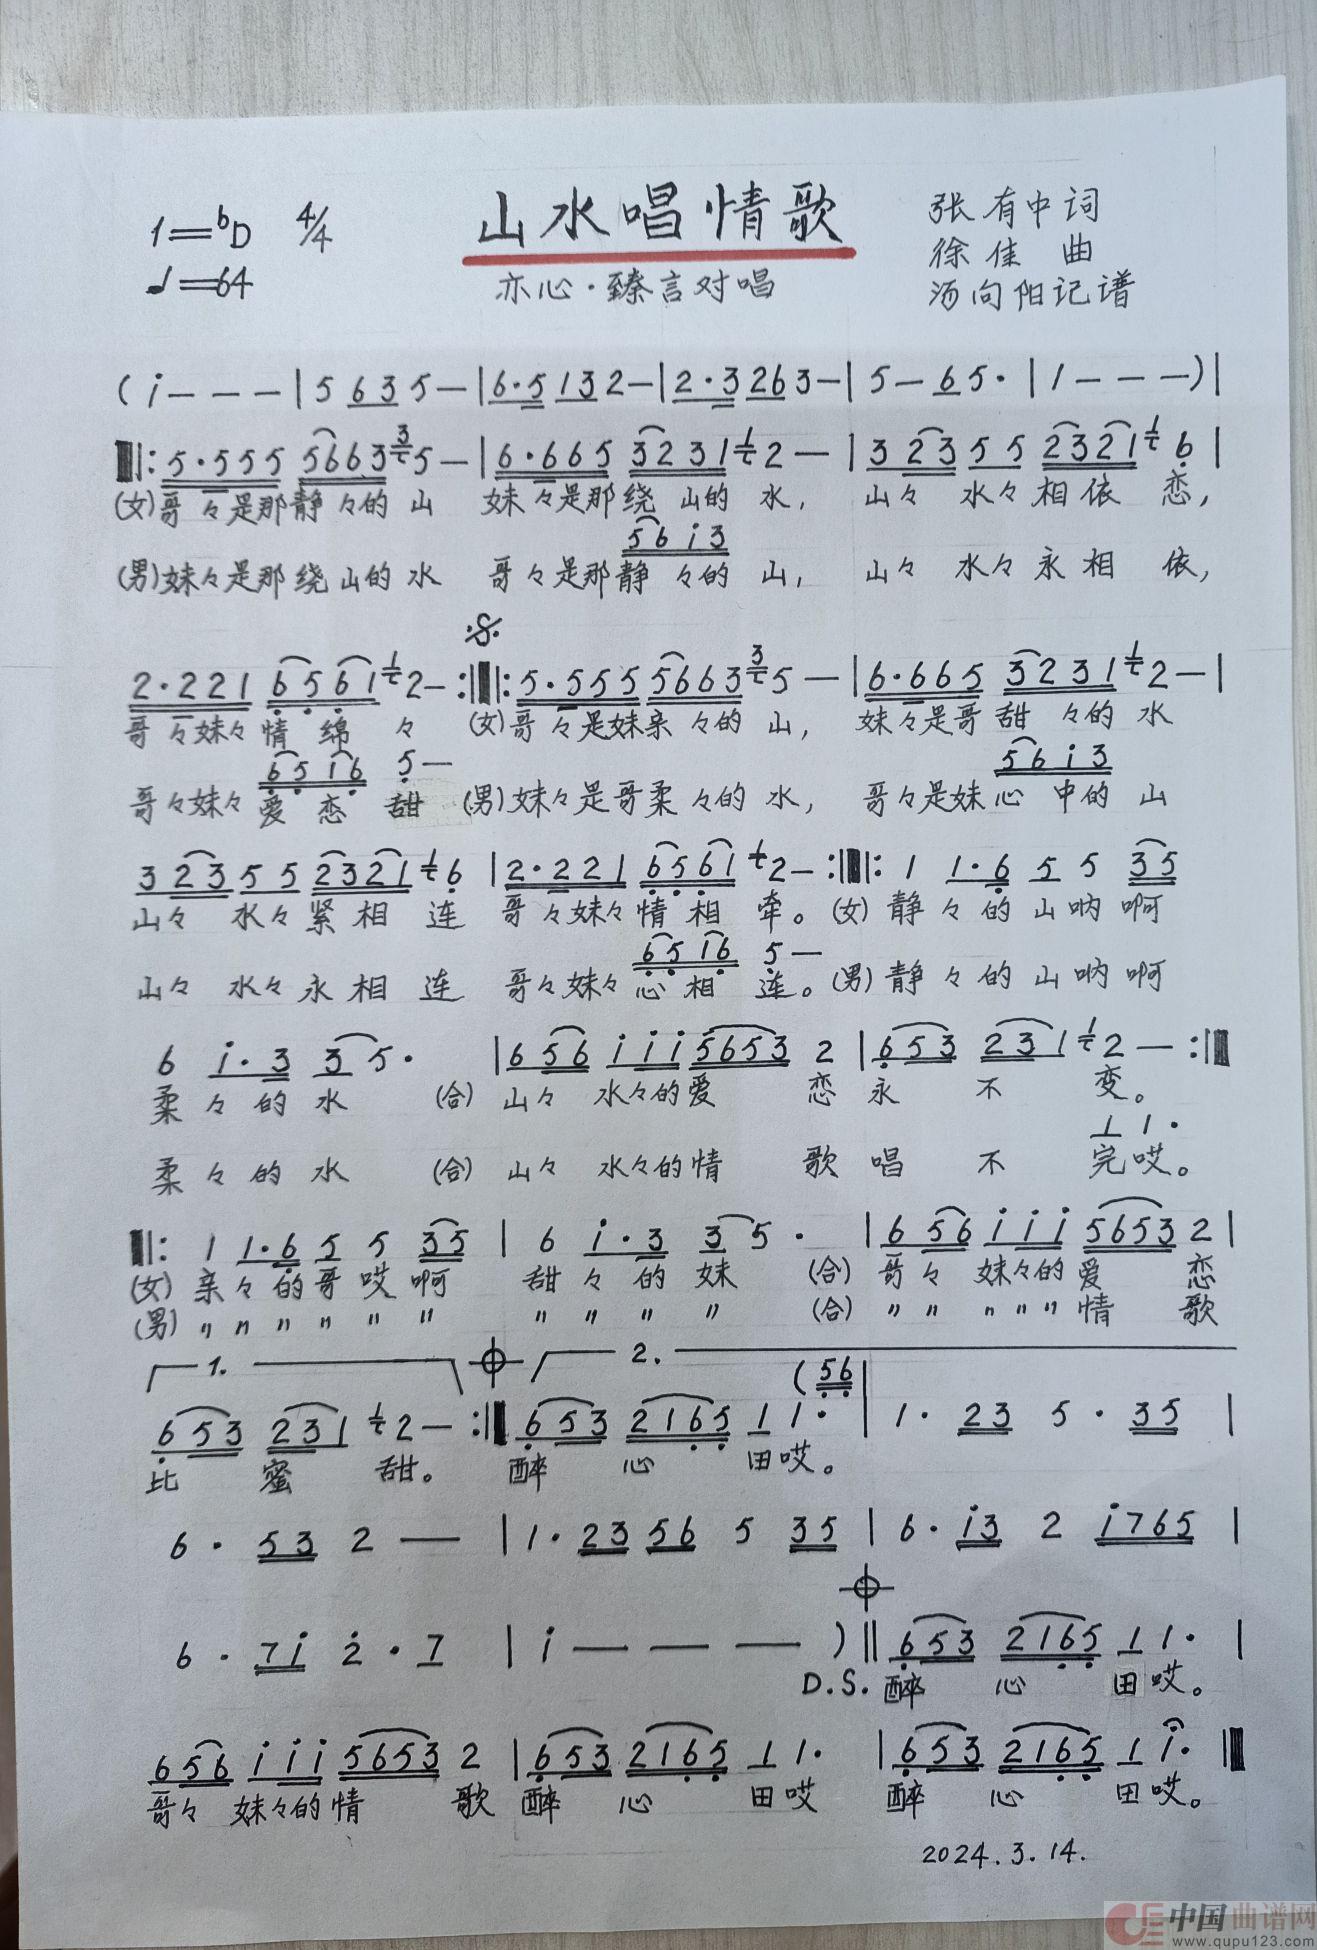 1=♭D 4/4
♩=64
山水唱情歌
亦心·臻言对唱
张有中词
徐佳曲
汤向阳记谱
( i - - - | 5 6 3 5 - | 6·5 1 3 2 - | 2·3 2 6 3 - | 5 - 6 5· | 1 - - - ) |
‖: 5·5 5 5 5 6 6 3 3 5 - | 6·6 6 5 3 2 3 1 1 2 - | 3 2 3 5 5 2 3 2 1 1 6 |
(女)哥々是那静々的山 妹々是那绕山的水, 山々 水々相依 恋,
5 6 i 3
(男)妹々是那绕山的水 哥々是那静々的山, 山々 水々永相 依,
𝄋
2·2 2 1 6 5 6 1 1 2 - :‖: 5·5 5 5 5 6 6 3 3 5 - | 6·6 6 5 3 2 3 1 1 2 - |
哥々妹々情绵々 (女)哥々是妹亲々的山, 妹々是哥甜々的水
6 5 1 6 5 - 5 6 i 3
哥々妹々爱恋甜 (男)妹々是哥柔々的水, 哥々是妹心中的山
3 2 3 5 5 2 3 2 1 1 6 | 2·2 2 1 6 5 6 1 1 2 - :‖: 1 1·6 5 5 3 5
山々 水々紧相连 哥々妹々情相牵。(女)静々的山呐啊
6 5 1 6 5 -
山々 水々永相连 哥々妹々心相连。(男)静々的山呐啊
6 i·3 3 5· | 6 5 6 i i i 5 6 5 3 2 | 6 5 3 2 3 1 1 2 - :‖
柔々的水 (合) 山々 水々的爱 恋永不变。
1 1·
柔々的水 (合) 山々 水々的情 歌唱不完哎。
‖: 1 1·6 5 5 3 5 | 6 i·3 3 5· | 6 5 6 i i i 5 6 5 3 2 |
(女)亲々的哥哎啊 甜々的妹 (合)哥々 妹々的爱 恋
(男)〃〃〃〃〃〃 〃〃〃〃 (合)〃〃 〃〃〃情 歌
1. 2.
( 5 6
6 5 3 2 3 1 1 2 - :‖ 6 5 3 2 1 6 5 1 1· | 1· 2 3 5· 3 5 |
比蜜甜。 醉心田哎。
6· 5 3 2 - | 1·2 3 5 6 5 3 5 | 6·i 3 2 i 7 6 5 |
6· 7 i 2·7 | i - - - ) ‖ 6 5 3 2 1 6 5 1 1· |
D.S. 醉心田哎。
6 5 6 i i i 5 6 5 3 2 | 6 5 3 2 1 6 5 1 1· | 6 5 3 2 1 6 5 1 i· ‖
哥々 妹々的情 歌 醉心田哎 醉心田哎。
2024.3.14.
中国曲谱网
www.qupu123.com